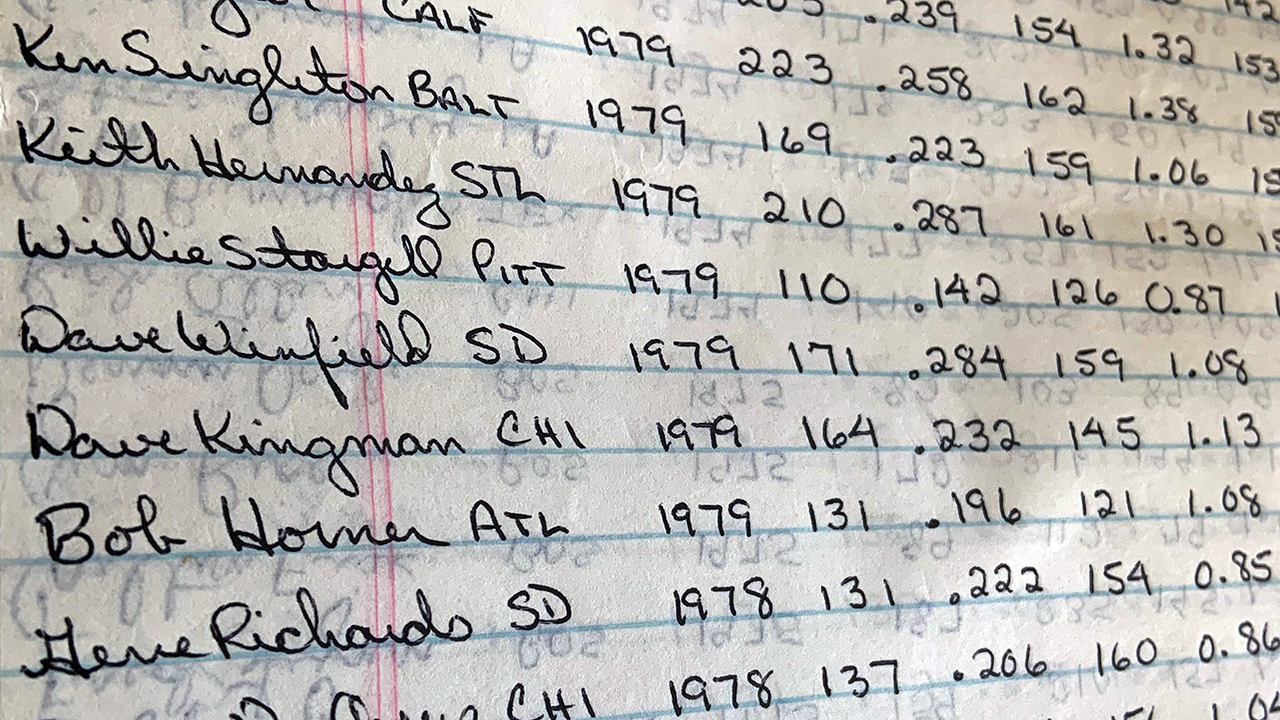 142
203 .239 154 1.32 153
CALF 1979 223 .258 162 1.38
Ken Singleton BALT 1979 169 .223 159 1.06
Keith Hernandez STL 1979 210 .287 161 1.30
Willie Stargell PITT 1979 110 .142 126 0.87
Dave Winfield SD 1979 171 .284 159 1.08
Dave Kingman CHI 1979 164 .232 145 1.13
Bob Horner ATL 1979 131 .196 121 1.08
Gene Richards SD 1978 131 .222 154 0.85
CHI 1978 137 .206 160 0.86